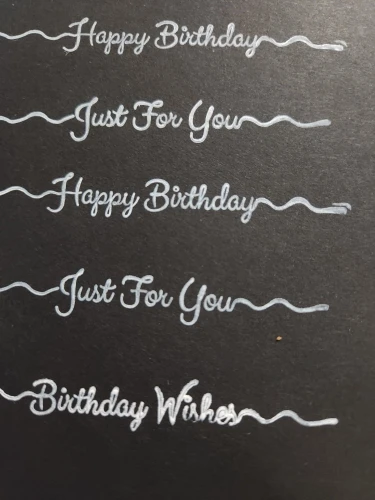 Happy Birthday
Just For You
Happy Birthday
Just For You
Birthday Wishes